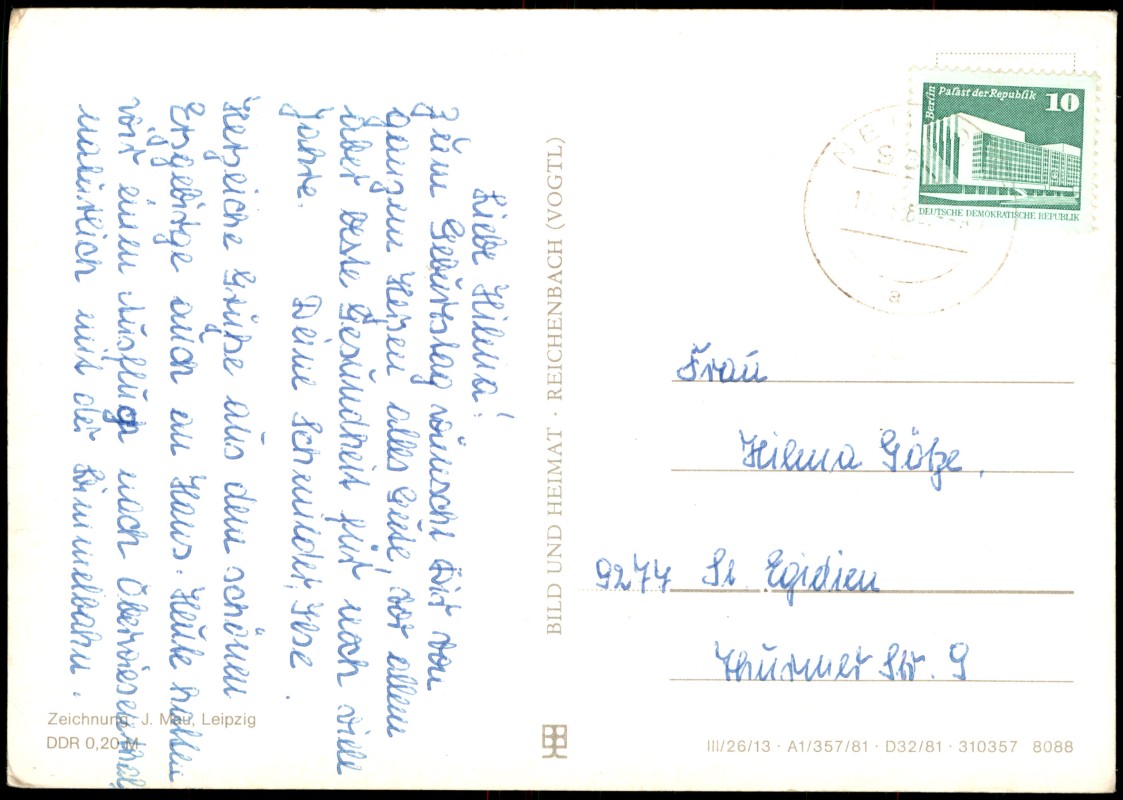 Liebe Hilma!
Zum Geburtstag wünscht Dir von
ganzem Herzen alles Gute, vor allem
aber beste Gesundheit für noch viele
Jahre.
Deine Schmilder,
Herzliche Grüße aus dem schönen
Erzgebirge auch an Haus. Heute hatten
wir einen Ausflug nach Oberwiesenthal
natürlich mit der Bimmelbahn.
Zeichnung: J. Mau, Leipzig
DDR 0,20 M
BILD UND HEIMAT · REICHENBACH (VOGTL)
Berlin
Palast der Republik
10
DEUTSCHE DEMOKRATISCHE REPUBLIK
a
Frau
Hilma Götze,
9274 St. Egidien
Thurmer Str. 9
III/26/13 · A1/357/81 · D32/81 · 310357 8088